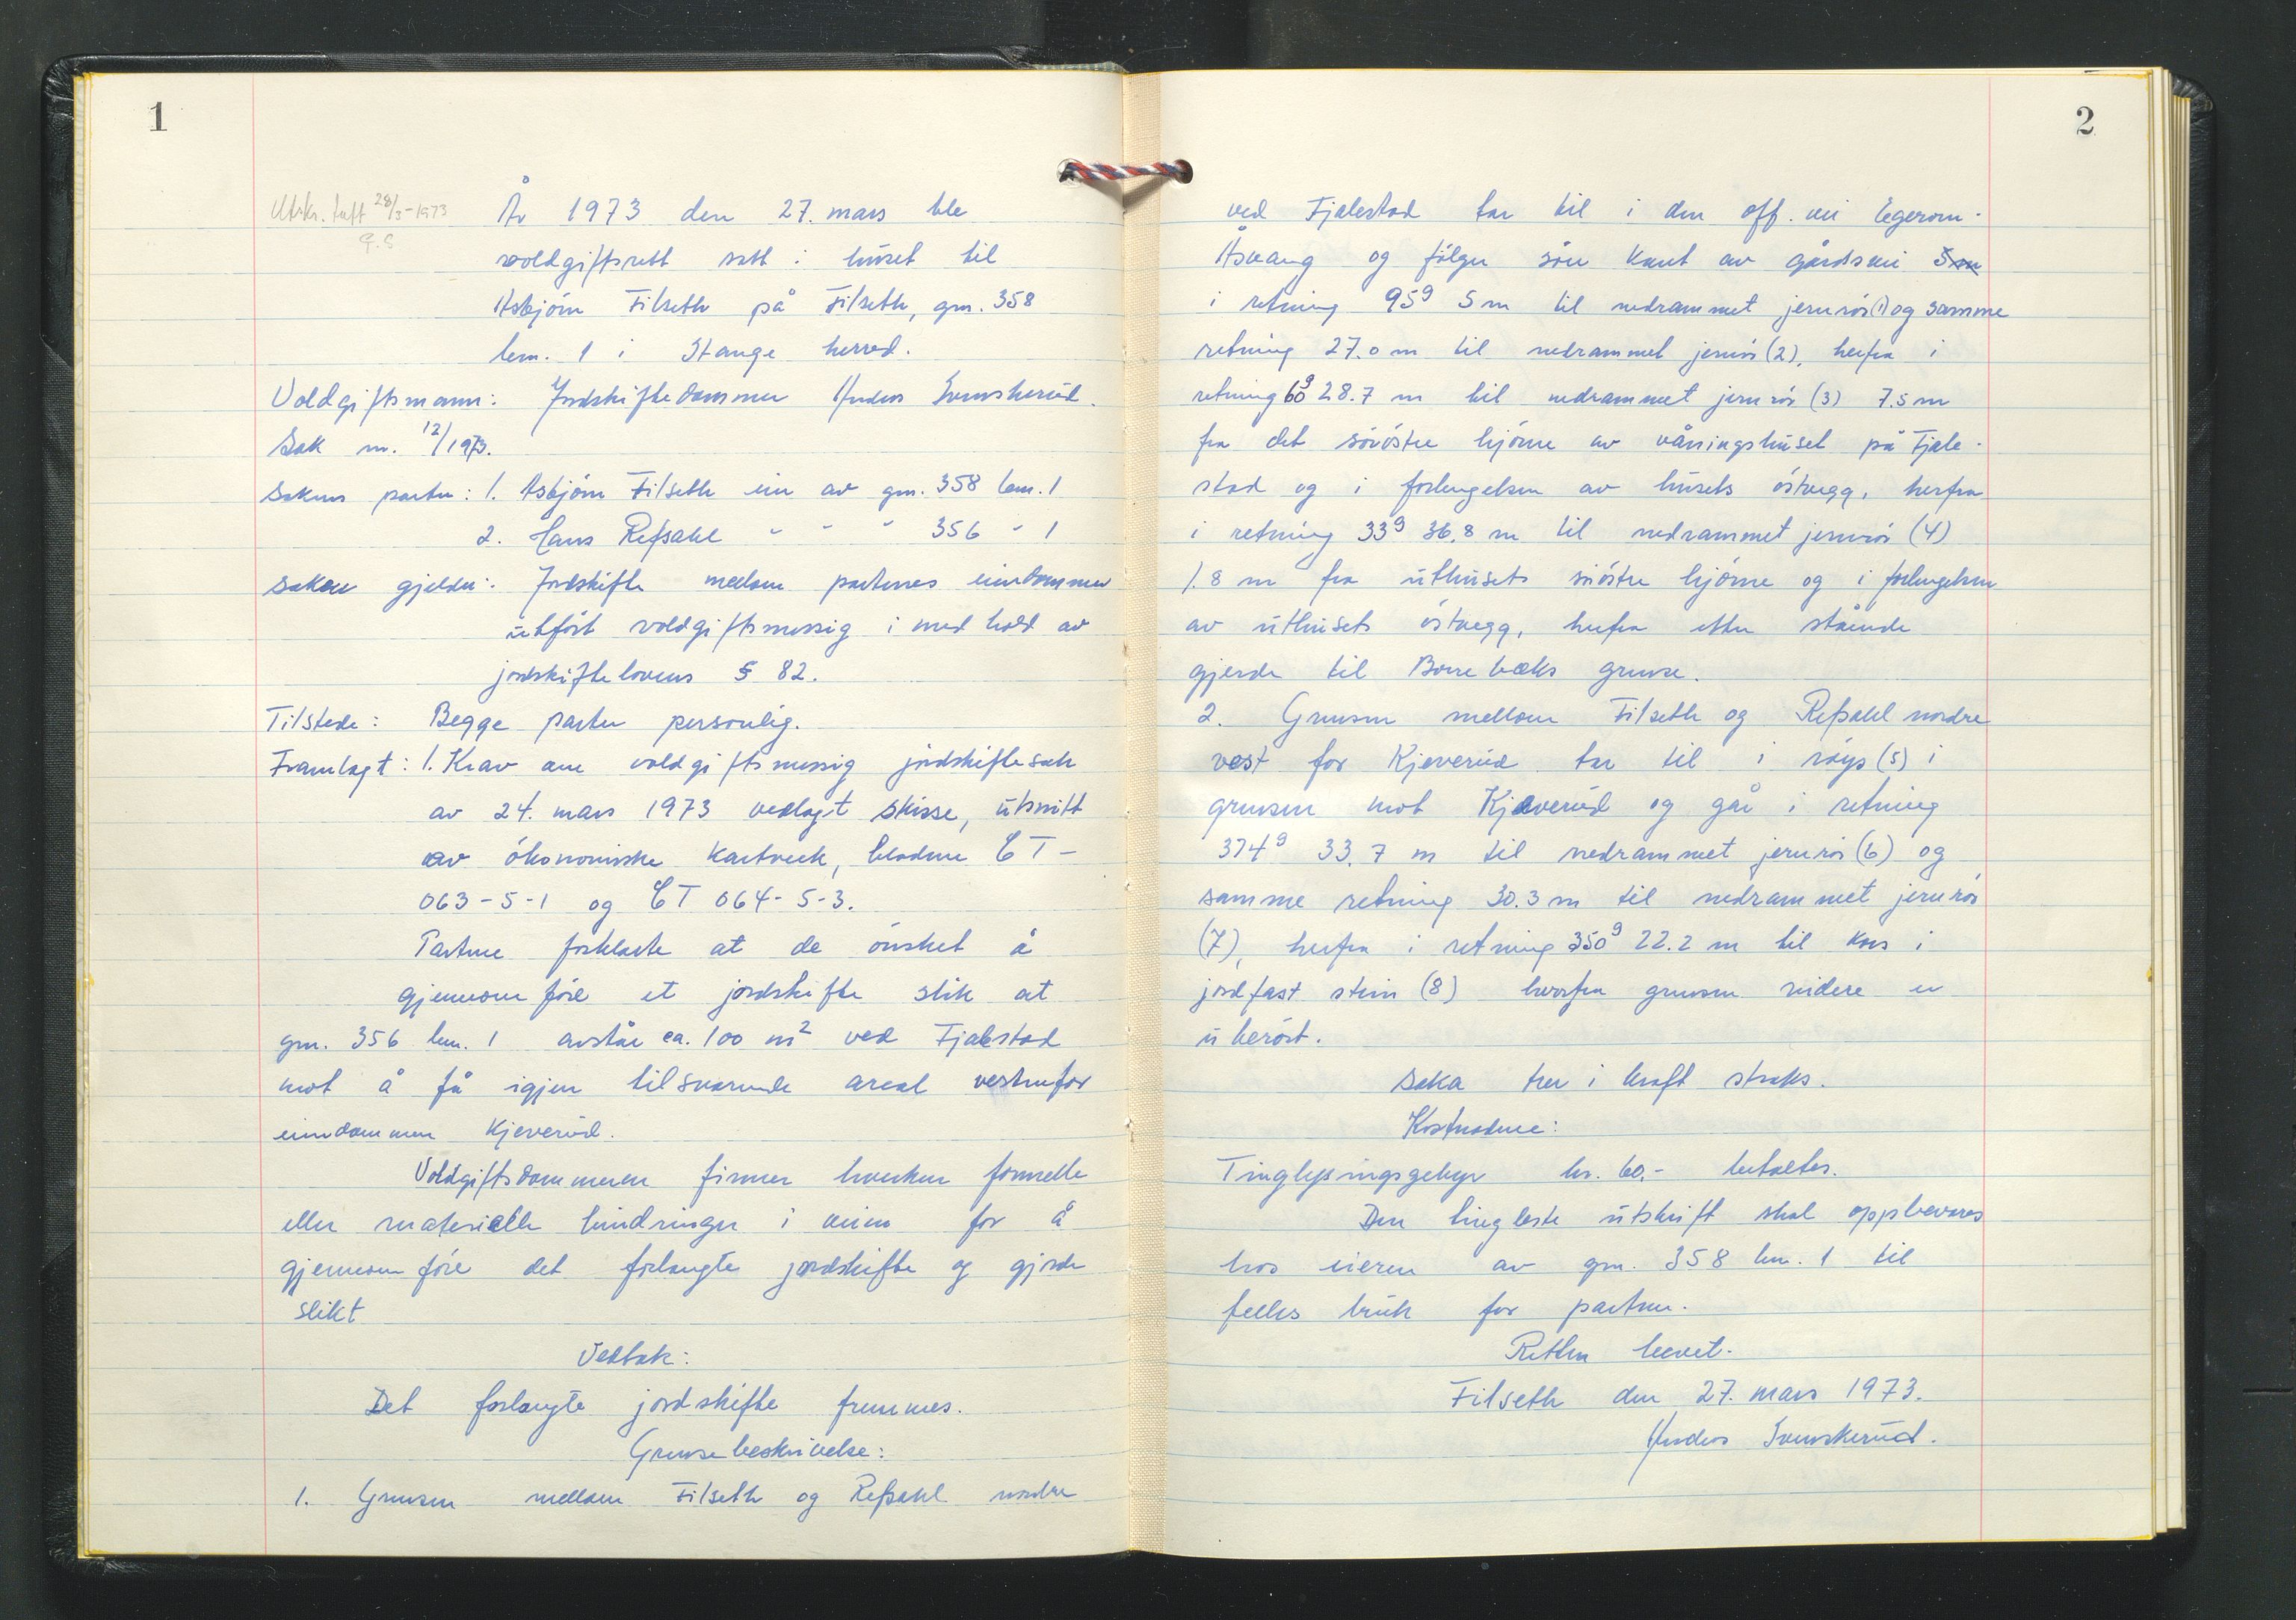 1
Utskr. tatt 28/3-1973
År 1973 den 27. mars ble
voldgiftsrett satt i huset til
Asbjörn Filseth på Filseth, gnr. 358
bnr. 1 i Stange herred.
Voldgiftsmann: Jordskiftedommer Anders Svenskerud.
Sak nr. 12/1973.
Sakens parter: 1. Asbjörn Filseth eier av gnr. 358 bnr. 1
2. Hans Refsahl " " " 356 " 1
Saken gjelder: Jordskifte mellom partenes eiendommer
utfört voldgiftsmessig i medhold av
jordskiftelovens § 82.
Tilstede: Begge parter personlig.
Framlagt: 1. Krav om voldgiftsmessig jordskiftesak
av 24. mars 1973 vedlagt skisse, utsnitt
av ökonomiske kartverk, bladene CT-
063-5-1 og CT 064-5-3.
Partene forklarte at de önsket å
gjennomföre et jordskifte slik at
gnr. 356 bnr. 1 avstår ca. 100 m² ved Fjælestad
mot å få igjen tilsvarende areal vestenfor
eiendommen Kjeverud.
Voldgiftsdommeren finner hverken formelle
eller materielle hindringer i veien for å
gjennomföre det forlangte jordskifte og gjorde
slikt
Vedtak:
Det forlangte jordskifte fremmes.
Grensebeskrivelse:
1. Grensen mellom Filseth og Refsahl nordre
2
ved Fjælestad tar til i den off. vei Egerom-
Åsvang og fölger söre kant av gårdsvei 5 m
i retning 95g 5 m til nedrammet jernrör (1) og samme
retning 27.0 m til nedrammet jernrör (2), herfra i
retning 60g 28.7 m til nedrammet jernrör (3) 7.5 m
fra det söröstre hjörne av våningshuset på Fjæle-
stad og i forlengelsen av husets östvegg, herfra
i retning 33g 36.8 m til nedrammet jernrör (4)
1.8 m fra uthusets söröstre hjörne og i forlengelsen
av uthusets östvegg, herfra etter stående
gjerde til Borrebæks grense.
2. Grensen mellom Filseth og Refsahl nordre
vest for Kjeverud tar til i röys (5) i
grensen mot Kjeverud og går i retning
374g 33.7 m til nedrammet jernrör (6) og
samme retning 30.3 m til nedrammet jernrör
(7), herfra i retning 350g 22.2 m til kors i
jordfast stein (8) hvorfra grensen videre er
uberört.
Saka trer i kraft straks.
Kostnadene:
Tinglysingsgebyr kr. 60,- betaltes.
Den tingleste utskrift skal oppbevares
hos eieren av gnr. 358 bnr. 1 til
felles bruk for partene.
Retten hevet.
Filseth den 27. mars 1973.
Anders Svenskerud.